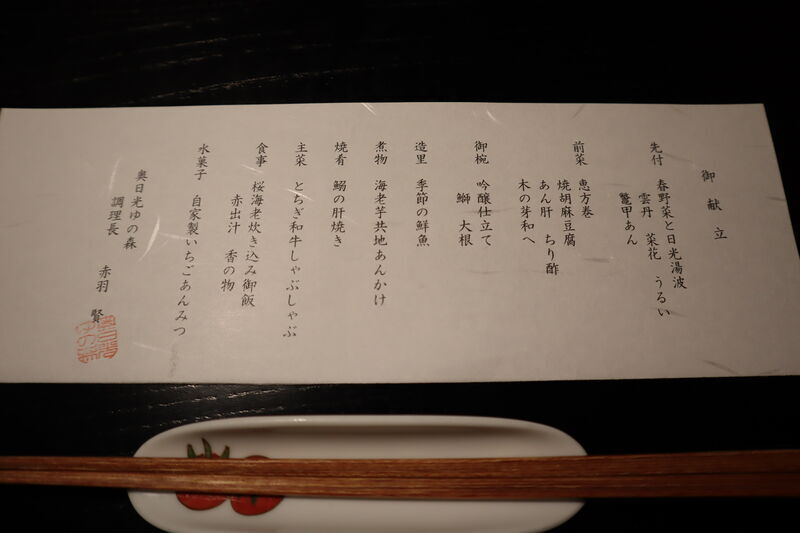 御献立
先付 春野菜と日光湯波
雲丹 菜花 うるい
鼈甲あん
前菜 恵方巻
焼胡麻豆腐
あん肝 ちり酢
木の芽和へ
御椀 吟醸仕立て
鰤 大根
造里 季節の鮮魚
煮物 海老芋共地あんかけ
焼肴 鰯の肝焼き
主菜 とちぎ和牛しゃぶしゃぶ
食事 桜海老炊き込み御飯
赤出汁 香の物
水菓子 自家製いちごあんみつ
奥日光ゆの森
調理長 赤羽 賢